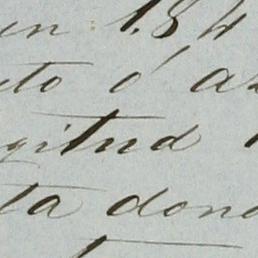 en 184
to ó a
gitud
ta dond